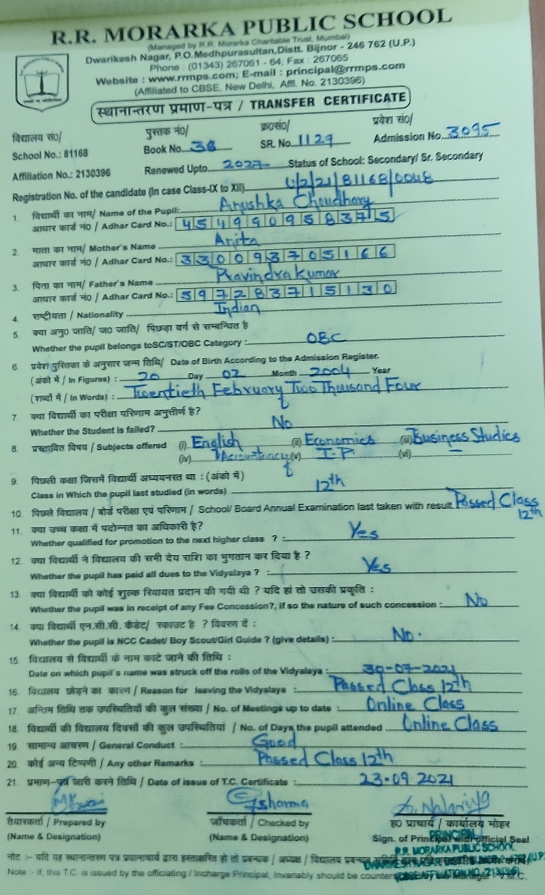 R.R. MORARKA PUBLIC SCHOOL
(Managed by R.R. Morarka Charitable Trust, Mumbai)
Dwarikesh Nagar, P.O. Medhpurasultan, Distt. Bijnor - 246 762 (U.P.)
Phone : (01343) 267061 - 64, Fax : 267065
Website : www.rrmps.com; E-mail : principal@rrmps.com
(Affiliated to CBSE, New Delhi, Affl. No. 2130396)
स्थानान्तरण प्रमाण-पत्र / TRANSFER CERTIFICATE
विद्यालय सं0/ पुस्तक नं0/ क्र0सं0/ प्रवेश सं0/
School No.: 81168 Book No 38 SR. No. 1129 Admission No. 3095
Affiliation No.: 2130396 Renewed Upto 2027 Status of School: Secondary/ Sr. Secondary
Registration No. of the candidate (In case Class-IX to XII) /2/21/81168/0048
1. विद्यार्थी का नाम/ Name of the Pupil: Anushka Chaudhary
आधार कार्ड नं0 / Adhar Card No.: 454990958375
2. माता का नाम/ Mother's Name Anita
आधार कार्ड नं0 / Adhar Card No.: 330093705166
3. पिता का नाम/ Father's Name Pravindra Kumar
आधार कार्ड नं0 / Adhar Card No.: 597283715130
4. राष्ट्रीयता / Nationality Indian
5. क्या अनु0 जाति/ ज0 जाति/ पिछड़ा वर्ग से सम्बन्धित है
Whether the pupil belongs toSC/ST/OBC Category : OBC
6. प्रवेश पुस्तिका के अनुसार जन्म तिथि/ Date of Birth According to the Admission Register.
(अंको में / In Figures) : 20 Day 02 Month 2004 Year
(शब्दों में / In Words) : Twentieth February Two Thousand Four
7. क्या विद्यार्थी का परीक्षा परिणाम अनुत्तीर्ण है?
Whether the Student is failed? No
8. प्रस्तावित विषय / Subjects offered (i) English (ii) Economics (iii) Business Studies
(iv) Accountancy (v) I.P (vi) —
9. पिछली कक्षा जिसमें विद्यार्थी अध्ययनरत था : (अंको में)
Class in Which the pupil last studied (in words) 12th
10. पिछले विद्यालय / बोर्ड परीक्षा एवं परिणाम / School/ Board Annual Examination last taken with result Passed Class 12th
11. क्या उच्च कक्षा में पदोन्नत का अधिकारी है?
Whether qualified for promotion to the next higher class ? : Yes
12. क्या विद्यार्थी ने विद्यालय की सभी देय राशि का भुगतान कर दिया है ?
Whether the pupil has paid all dues to the Vidyalaya ? : Yes
13. क्या विद्यार्थी को कोई शुल्क रियायत प्रदान की गयी थी ? यदि हां तो उसकी प्रकृति :
Whether the pupil was in receipt of any Fee Concession?, if so the nature of such concession : No
14. क्या विद्यार्थी एन.सी.सी. कैडेट/ स्काउट है ? विवरण दें :
Whether the pupil is NCC Cadet/ Boy Scout/Girl Guide ? (give details) : No.
15. विद्यालय से विद्यार्थी के नाम काटे जाने की तिथि :
Date on which pupil's name was struck off the rolls of the Vidyalaya : 30-07-2021
16. विद्यालय छोड़ने का कारण / Reason for leaving the Vidyalaya Passed Class 12th
17. अन्तिम तिथि तक उपस्थितियों की कुल संख्या / No. of Meetings up to date : Online Class
18. विद्यार्थी की विद्यालय दिवसों की कुल उपस्थितियां / No. of Days the pupil attended Online Class
19. सामान्य आचरण / General Conduct : Good
20. कोई अन्य टिप्पणी / Any other Remarks : Passed Class 12th
21. प्रमाण-पत्र जारी करने तिथि / Date of issue of T.C. Certificate : 23-09-2021
तैयारकर्ता / Prepared by जाँचकर्ता / Checked by ह0 प्राचार्य / कार्यालय मोहर
(Name & Designation) (Name & Designation) Sign. of Principal with official Seal
PRINCIPAL
R.R. MORARKA PUBLIC SCHOOL
नोट :- यदि यह स्थानान्तरण पत्र प्रधानाचार्य द्वारा हस्ताक्षरित हो तो प्रबन्धक / अध्यक्ष / विद्यालय
Note :- If this T.C. is issued by the officiating / Incharge Principal, Invariably should be